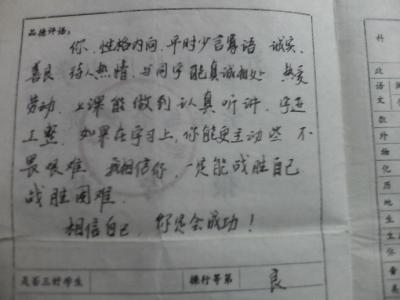 品德评语:
你,性格内向,平时少言寡语 诚实、
善良 待人热情,与同学能真诚相处 热爱
劳动,上课能做到认真听讲,字迹
工整,如果在学习上,你能更主动些 不
畏艰难 我相信你,一定能战胜自己
战胜困难.
相信自己,你定会成功!
是否三好学生
德行等第
良
科
政
语
文
数
外
物
化
历
地
生